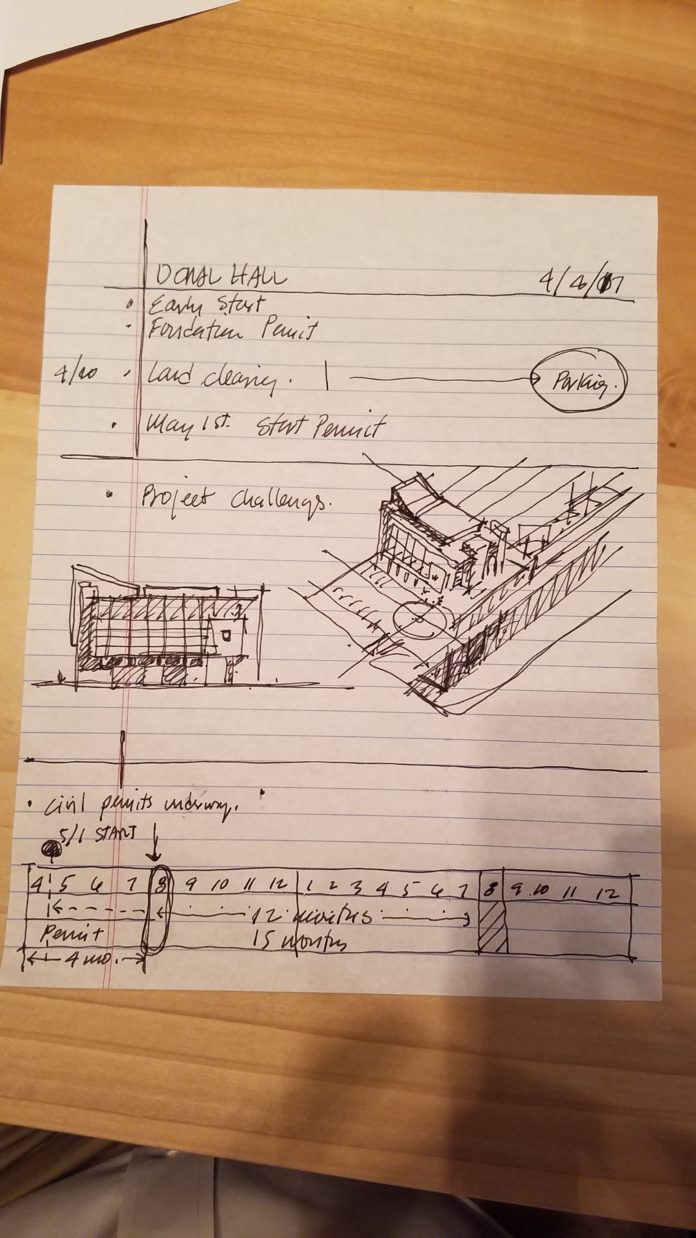 HALL
4/6/17
• Early Start
• Foundation Permit
4/20 • Land clearing. Parking.
• May 1st. Start Permit
• Project challenges.
• Civil permits underway.
5/1 START
4 5 6 7 8 9 10 11 12 1 2 3 4 5 6 7 8 9 10 11 12
12 months
Permit 15 months
4 mo.